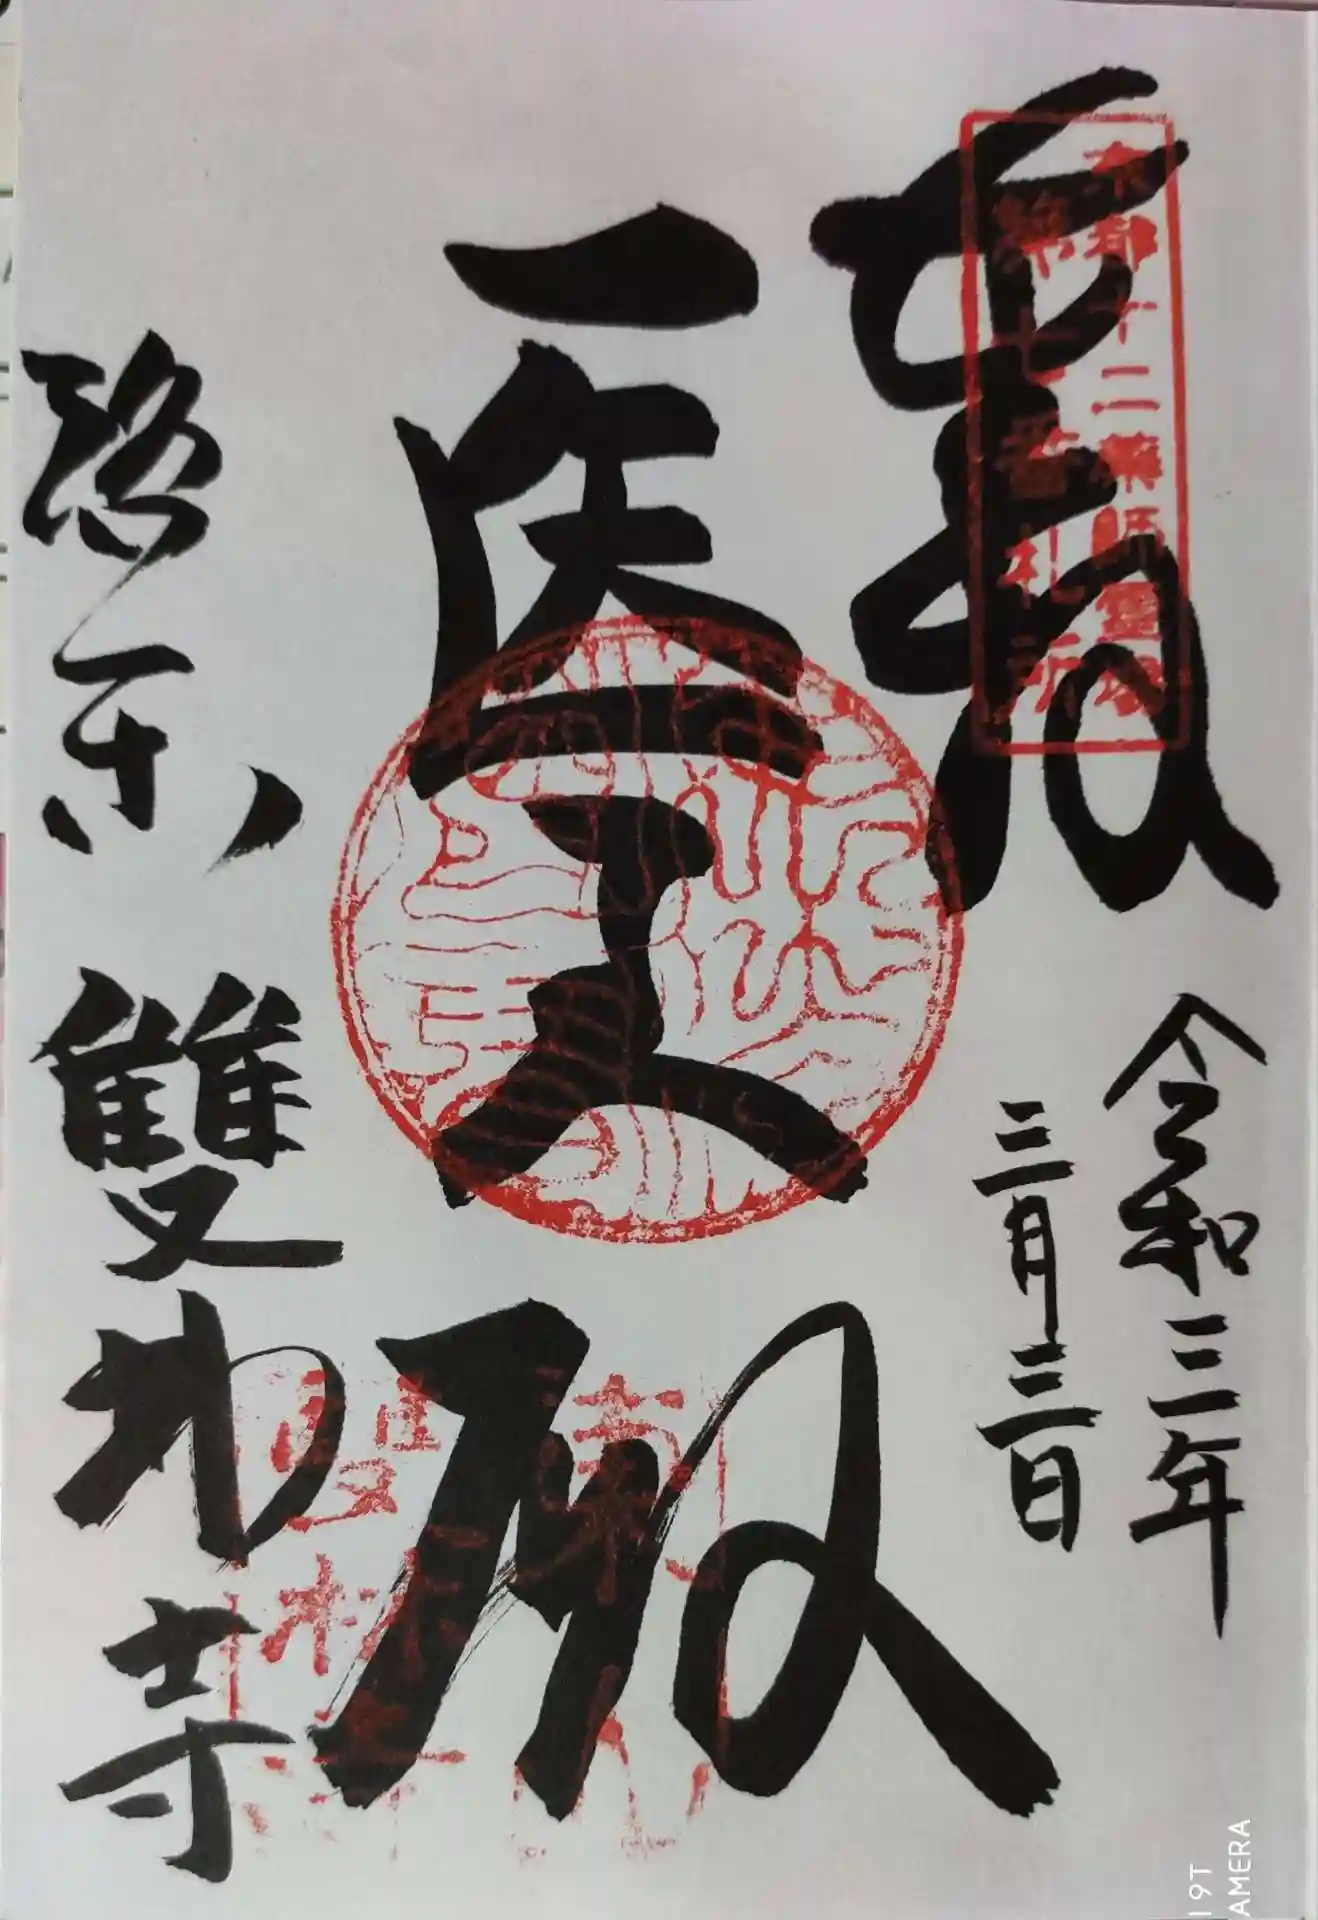 奉拝
京都十二薬師霊場
第七番札所
令和三年
三月三日
医王殿
洛東 雙林寺
19T
AMERA